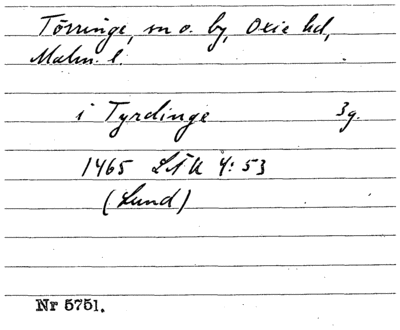 Törringe, sn o. by, Oxie hd,
Malm. l.
i Tyrdinge 3g.
1465 LÄU 4:53
(Lund)
Nr 5751.